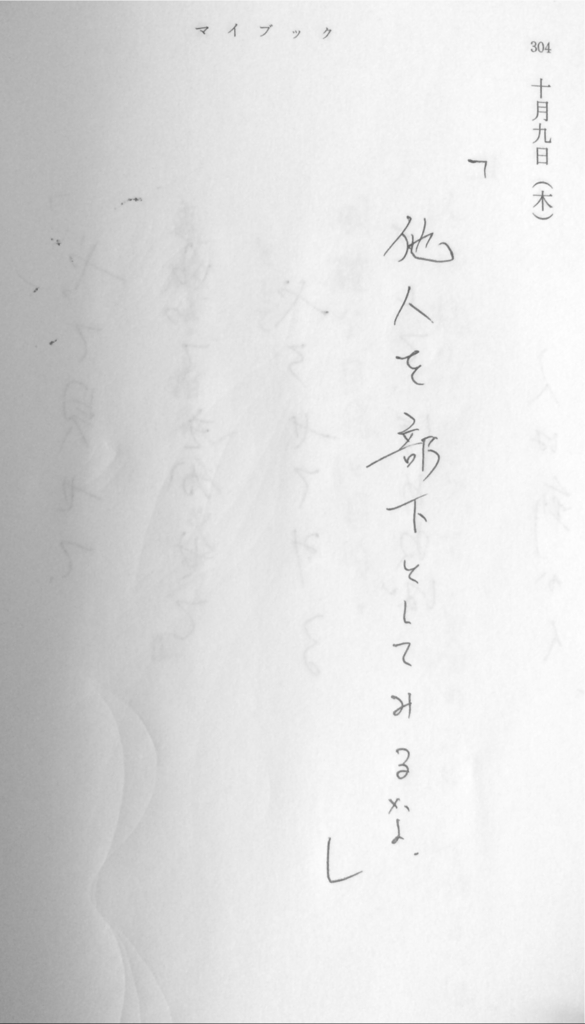 マイブック
304
十月九日（木）
「
他人を部下としてみるな.
」